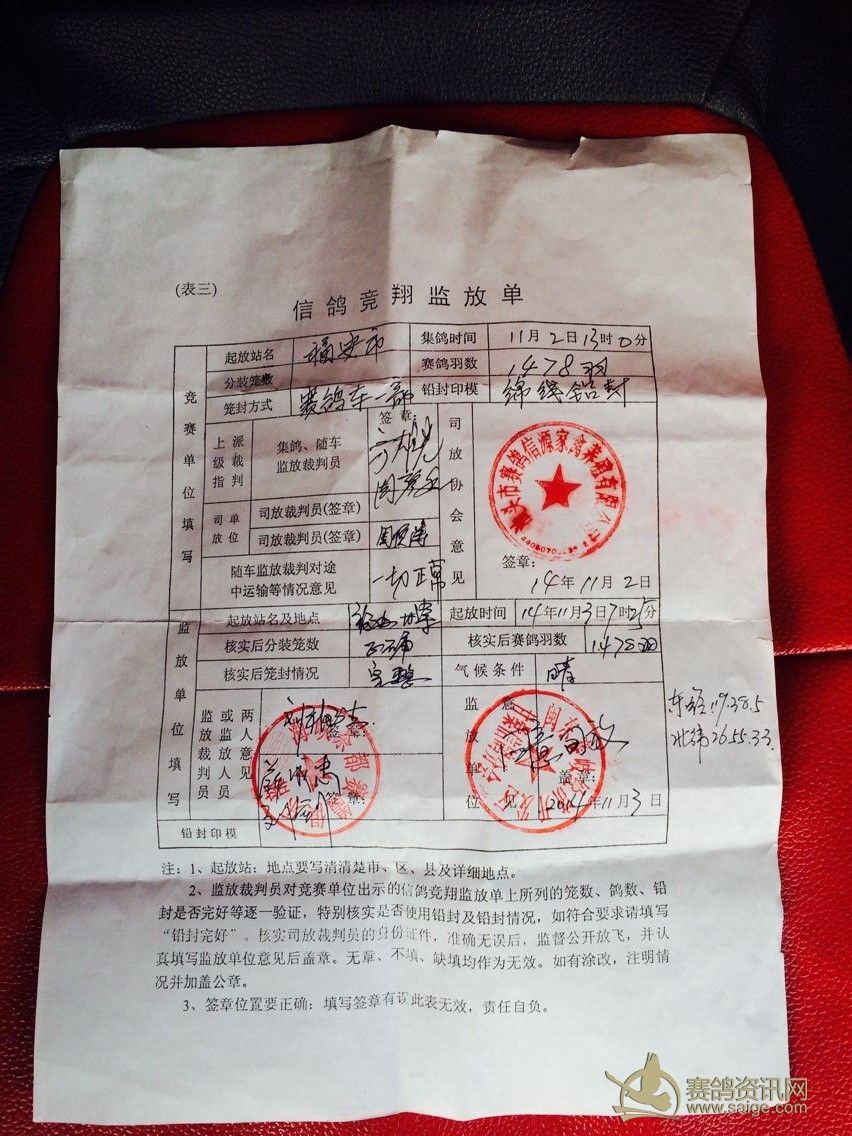 (表三)
信鸽竞翔监放单
竞赛单位填写
起放站名 福安市 集鸽时间 11月2日13时0分
分装笼数 赛鸽羽数 1478羽
笼封方式 赛鸽车一部 铅封印模 绵线铅封
上级指派裁判 集鸽、随车监放裁判员 签章:
司放单位 司放裁判员(签章)
司放裁判员(签章)
随车监放裁判对途中运输等情况意见 一切正常
司放协会意见
签章:
14年11月2日
监放单位填写
起放站名及地点 起放时间 14年11月3日7时25分
核实后分装笼数 核实后赛鸽羽数 1478羽
核实后笼封情况 完整 气候条件 晴
监放裁判员或两人意见人员
签章:
签章:
监放单位意见 同意司放
盖章:
2014年11月3日
铅封印模
东经119.38.5
北纬26.55.33
注:1、起放站:地点要写清清楚市、区、县及详细地点。
2、监放裁判员对竞赛单位出示的信鸽竞翔监放单上所列的笼数、鸽数、铅
封是否完好等逐一验证,特别核实是否使用铅封及铅封情况,如符合要求请填写
“铅封完好”。核实司放裁判员的身份证件,准确无误后,监督公开放飞,并认
真填写监放单位意见后盖章。无章、不填、缺填均作为无效。如有涂改,注明情
况并加盖公章。
3、签章位置要正确;填写签章有误此表无效,责任自负。
赛鸽资讯网
www.saige.com